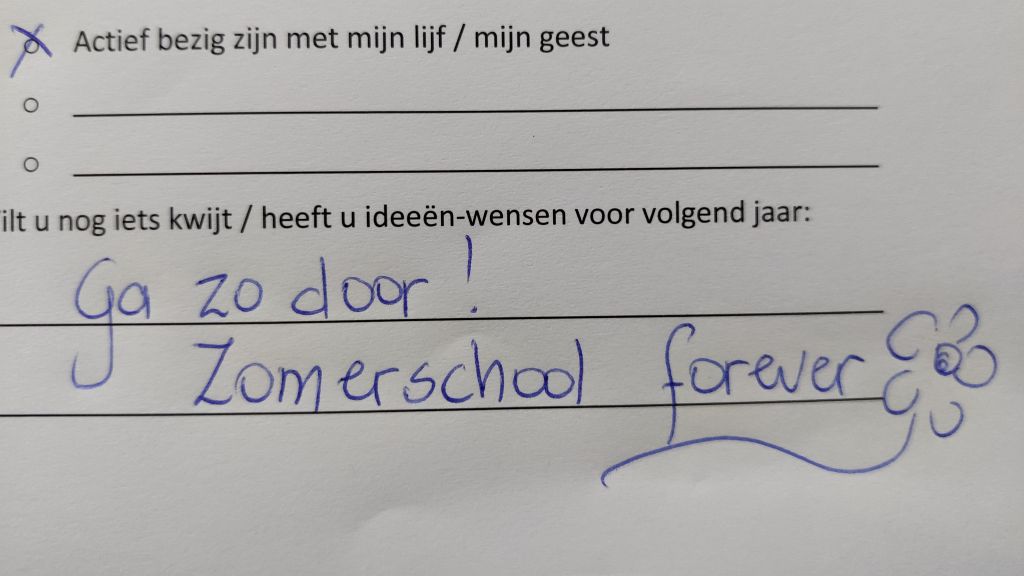 Actief bezig zijn met mijn lijf / mijn geest
ilt u nog iets kwijt / heeft u ideeën-wensen voor volgend jaar:
Ga zo door!
Zomerschool forever